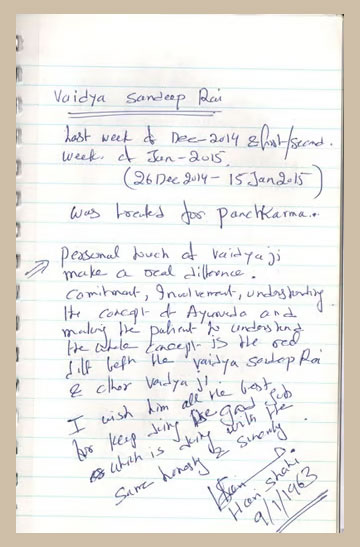 Vaidya Sandeep Rai
Last week of Dec-2014 & first/second.
week of Jan-2015.
(26 Dec 2014 - 15 Jan 2015)
was treated for panchKarma..
Personal touch of vaidyaji
make a real difference.
Comitment, Involvement, understanding
the concept of Ayurveda and
making the patient to understand
the whole concept is the real
betn the vaidya Sandeep Rai
& other vaidya ji.
I wish him all the best
for keep doing the good job
which is doing with the
same honesty & sincerity.
Hari Shahi
9/1/1963